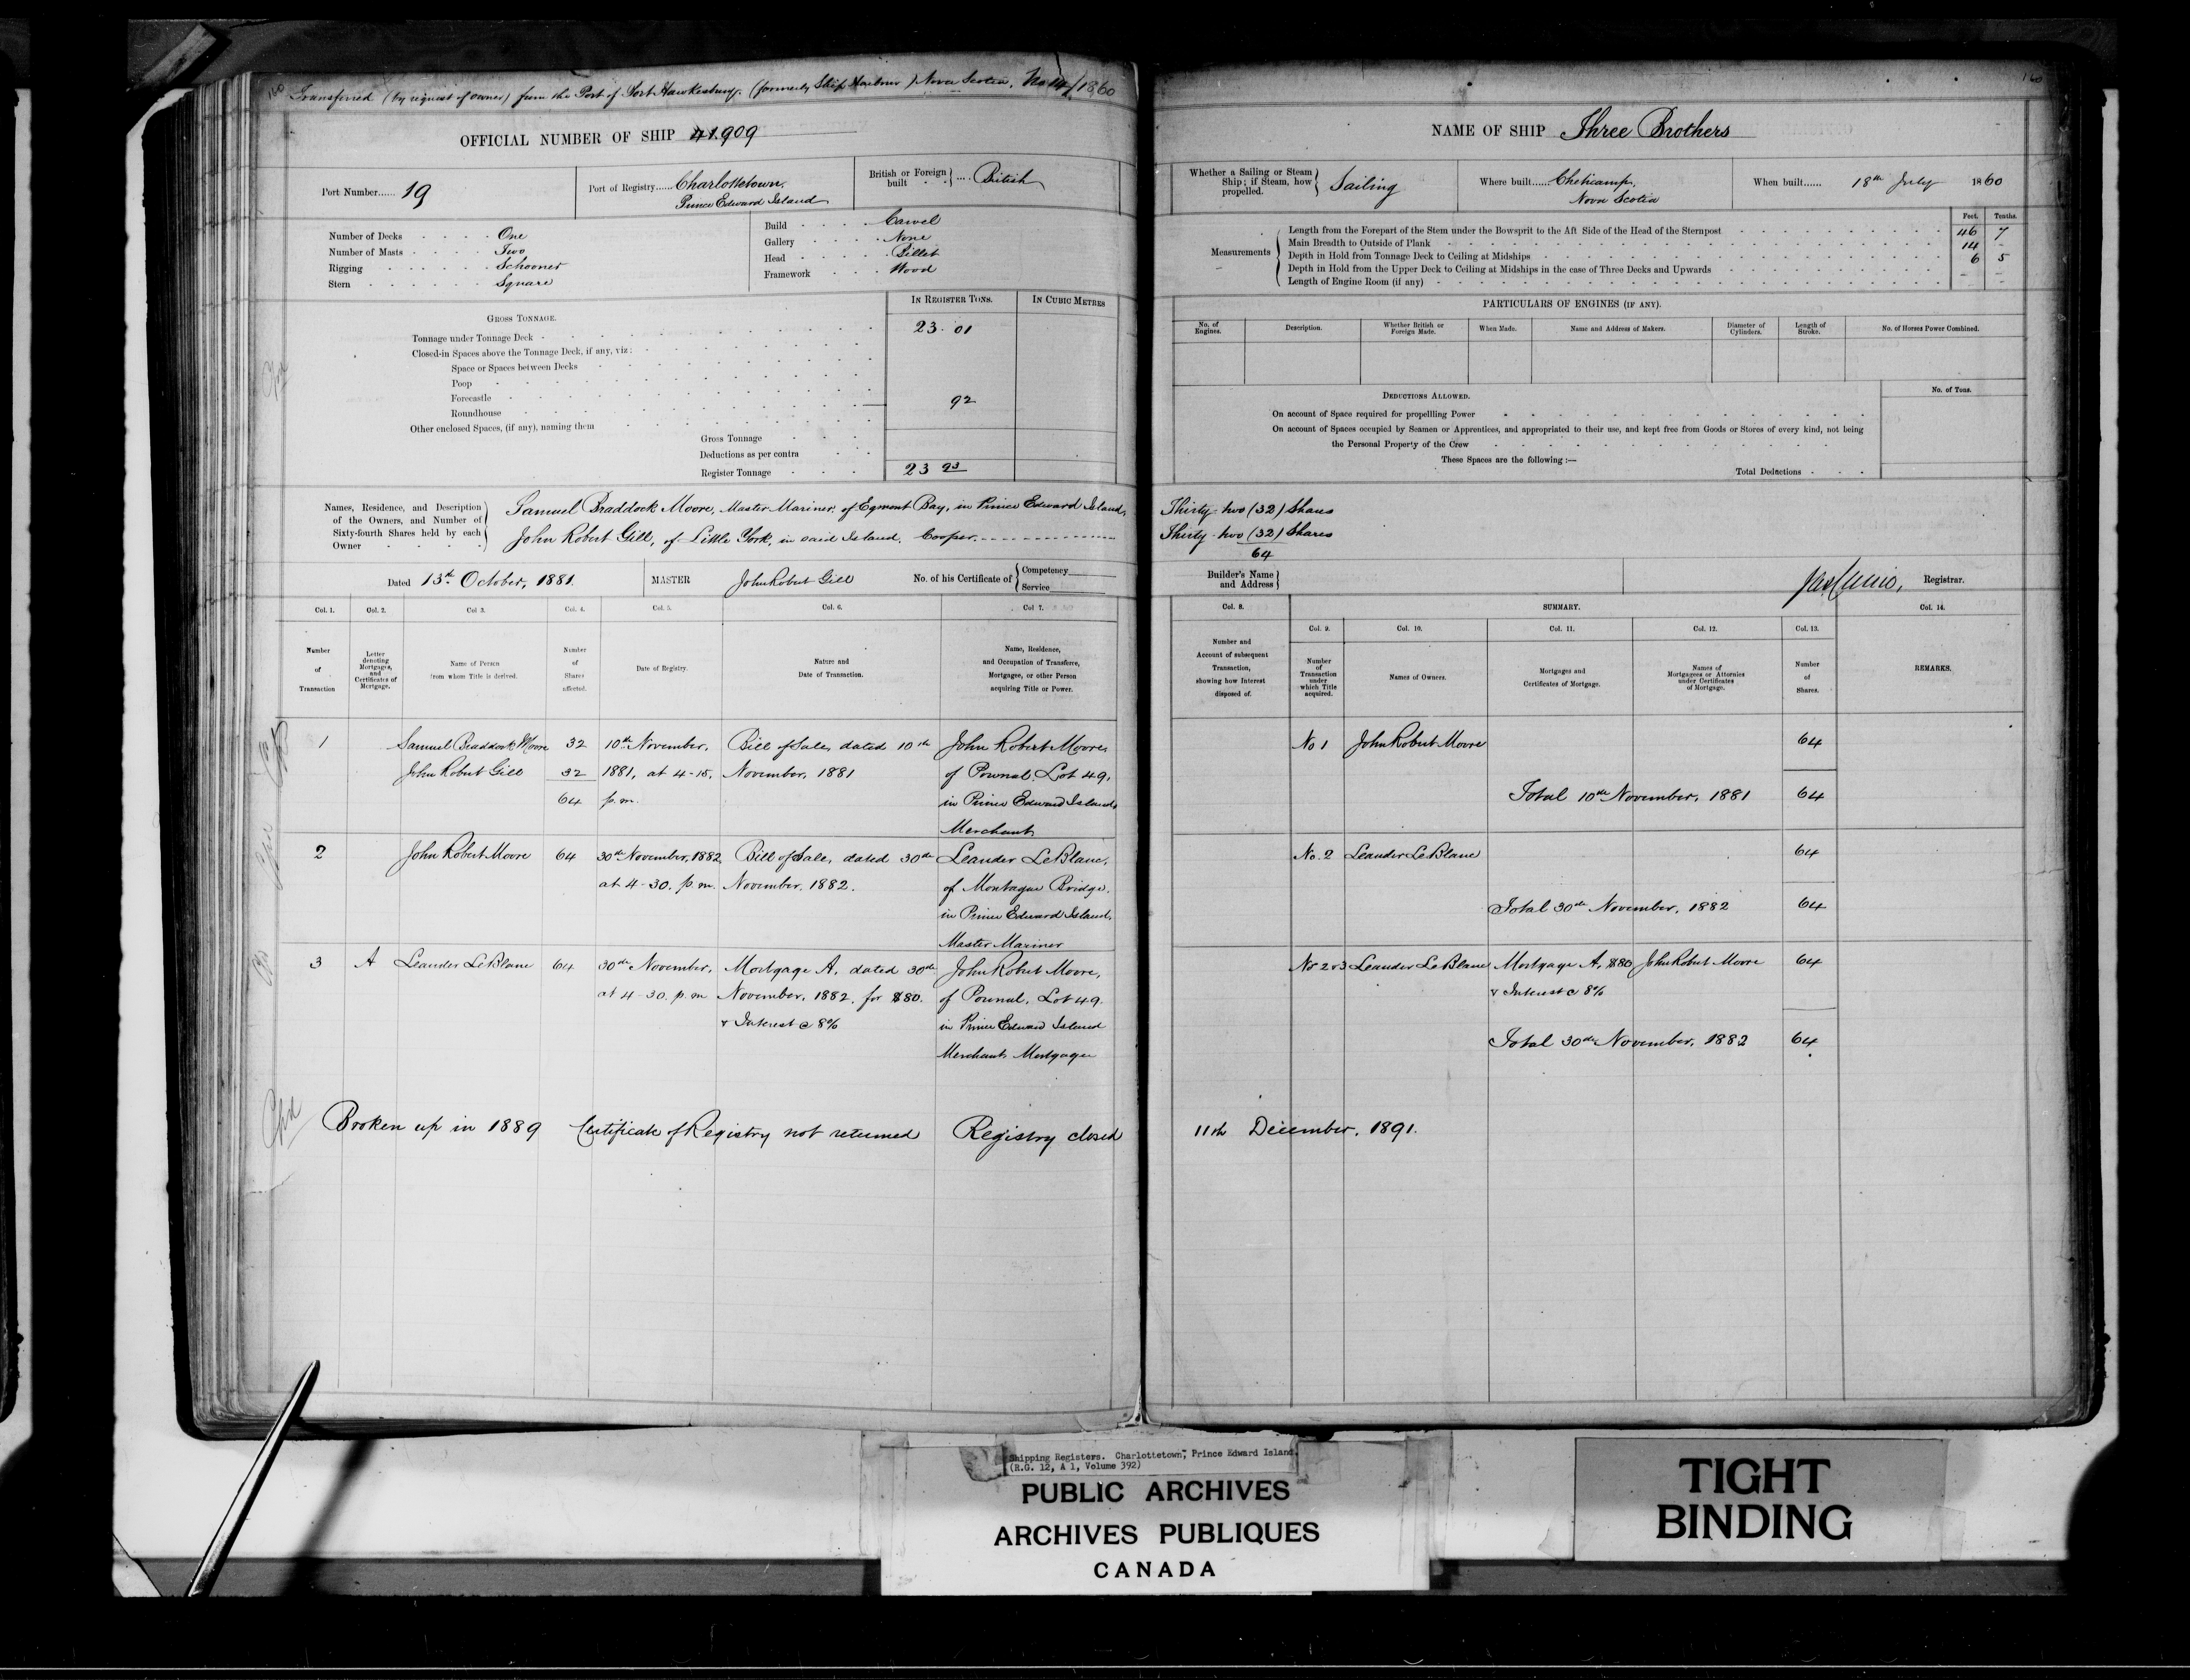 160 Transferred (by request of owner) from the Port of Port Hawkesbury, (formerly Ship Harbour) Nova Scotia, No 14/1860
OFFICIAL NUMBER OF SHIP 41.909
Port Number...... 19
Port of Registry...... Charlottetown,
Prince Edward Island
British or Foreign built .... British
Number of Decks One
Number of Masts Two
Rigging Schooner
Stern Square
Build Carvel
Gallery None
Head Billet
Framework Wood
GROSS TONNAGE.
IN REGISTER TONS.
IN CUBIC METRES
Tonnage under Tonnage Deck 23. 01
Closed-in Spaces above the Tonnage Deck, if any, viz:
Space or Spaces between Decks
Poop
Forecastle
Roundhouse 92
Other enclosed Spaces, (if any), naming them
Gross Tonnage
Deductions as per contra
Register Tonnage 23 93
Names, Residence, and Description
of the Owners, and Number of
Sixty-fourth Shares held by each
Owner
Samuel Braddock Moore, Master Mariner, of Egmont Bay, in Prince Edward Island,
John Robert Gill, of Little York, in said Island, Cooper.
Dated 13th October, 1881.
MASTER John Robert Gill
No. of his Certificate of Competency
Service
Col. 1. Col. 2. Col 3. Col. 4. Col. 5. Col. 6. Col 7.
Number of Transaction
Letter denoting Mortgages, and Certificates of Mortgage.
Name of Person from whom Title is derived.
Number of Shares affected.
Date of Registry.
Nature and Date of Transaction.
Name, Residence, and Occupation of Transferee, Mortgagee, or other Person acquiring Title or Power.
1 Samuel Braddock Moore 32 10th November, Bill of Sale, dated 10th John Robert Moore,
John Robert Gill 32 1881, at 4-15, November, 1881 of Pownal, Lot 49,
64 p.m. in Prince Edward Island,
Merchant
2 John Robert Moore 64 30th November, 1882 Bill of Sale, dated 30th Leander LeBlanc,
at 4-30. p.m. November, 1882. of Montague Bridge,
in Prince Edward Island,
Master Mariner
3 A Leander LeBlanc 64 30th November, Mortgage A, dated 30th John Robert Moore,
at 4-30. p.m November, 1882, for $80. of Pownal, Lot 49.
& Interest @ 8% in Prince Edward Island
Merchant Mortgagee
Broken up in 1889 Certificate of Registry not returned Registry closed
160
NAME OF SHIP Three Brothers
Whether a Sailing or Steam
Ship; if Steam, how
propelled. Sailing
Where built...... Cheticamp,
Nova Scotia
When built...... 18th July 1860
Feet. Tenths.
Measurements
Length from the Forepart of the Stem under the Bowsprit to the Aft Side of the Head of the Sternpost 46 7
Main Breadth to Outside of Plank 14 -
Depth in Hold from Tonnage Deck to Ceiling at Midships 6 5
Depth in Hold from the Upper Deck to Ceiling at Midships in the case of Three Decks and Upwards - -
Length of Engine Room (if any) - -
PARTICULARS OF ENGINES (IF ANY).
No. of Engines.
Description.
Whether British or Foreign Made.
When Made.
Name and Address of Makers.
Diameter of Cylinders.
Length of Stroke.
No. of Horses Power Combined.
DEDUCTIONS ALLOWED.
No. of Tons.
On account of Space required for propelling Power
On account of Spaces occupied by Seamen or Apprentices, and appropriated to their use, and kept free from Goods or Stores of every kind, not being
the Personal Property of the Crew
These Spaces are the following :—
Total Deductions
Thirty-two (32) Shares
Thirty-two (32) Shares
64
Builder's Name
and Address
Registrar.
Col. 8. SUMMARY. Col. 14.
Col. 9. Col. 10. Col. 11. Col. 12. Col. 13.
Number and Account of subsequent Transaction, showing how Interest disposed of.
Number of Transaction under which Title acquired.
Names of Owners.
Mortgages and Certificates of Mortgage.
Names of Mortgagees or Attornies under Certificates of Mortgage.
Number of Shares.
REMARKS.
No 1 John Robert Moore 64
Total 10th November, 1881 64
No. 2 Leander LeBlanc 64
Total 30th November, 1882 64
No 2 & 3 Leander LeBlanc Mortgage A, $80 John Robert Moore 64
& Interest @ 8%
Total 30th November, 1882 64
11th December, 1891.
Shipping Registers. Charlottetown, Prince Edward Island.
(R.G. 12, A 1, Volume 392)
PUBLIC ARCHIVES
ARCHIVES PUBLIQUES
CANADA
TIGHT
BINDING